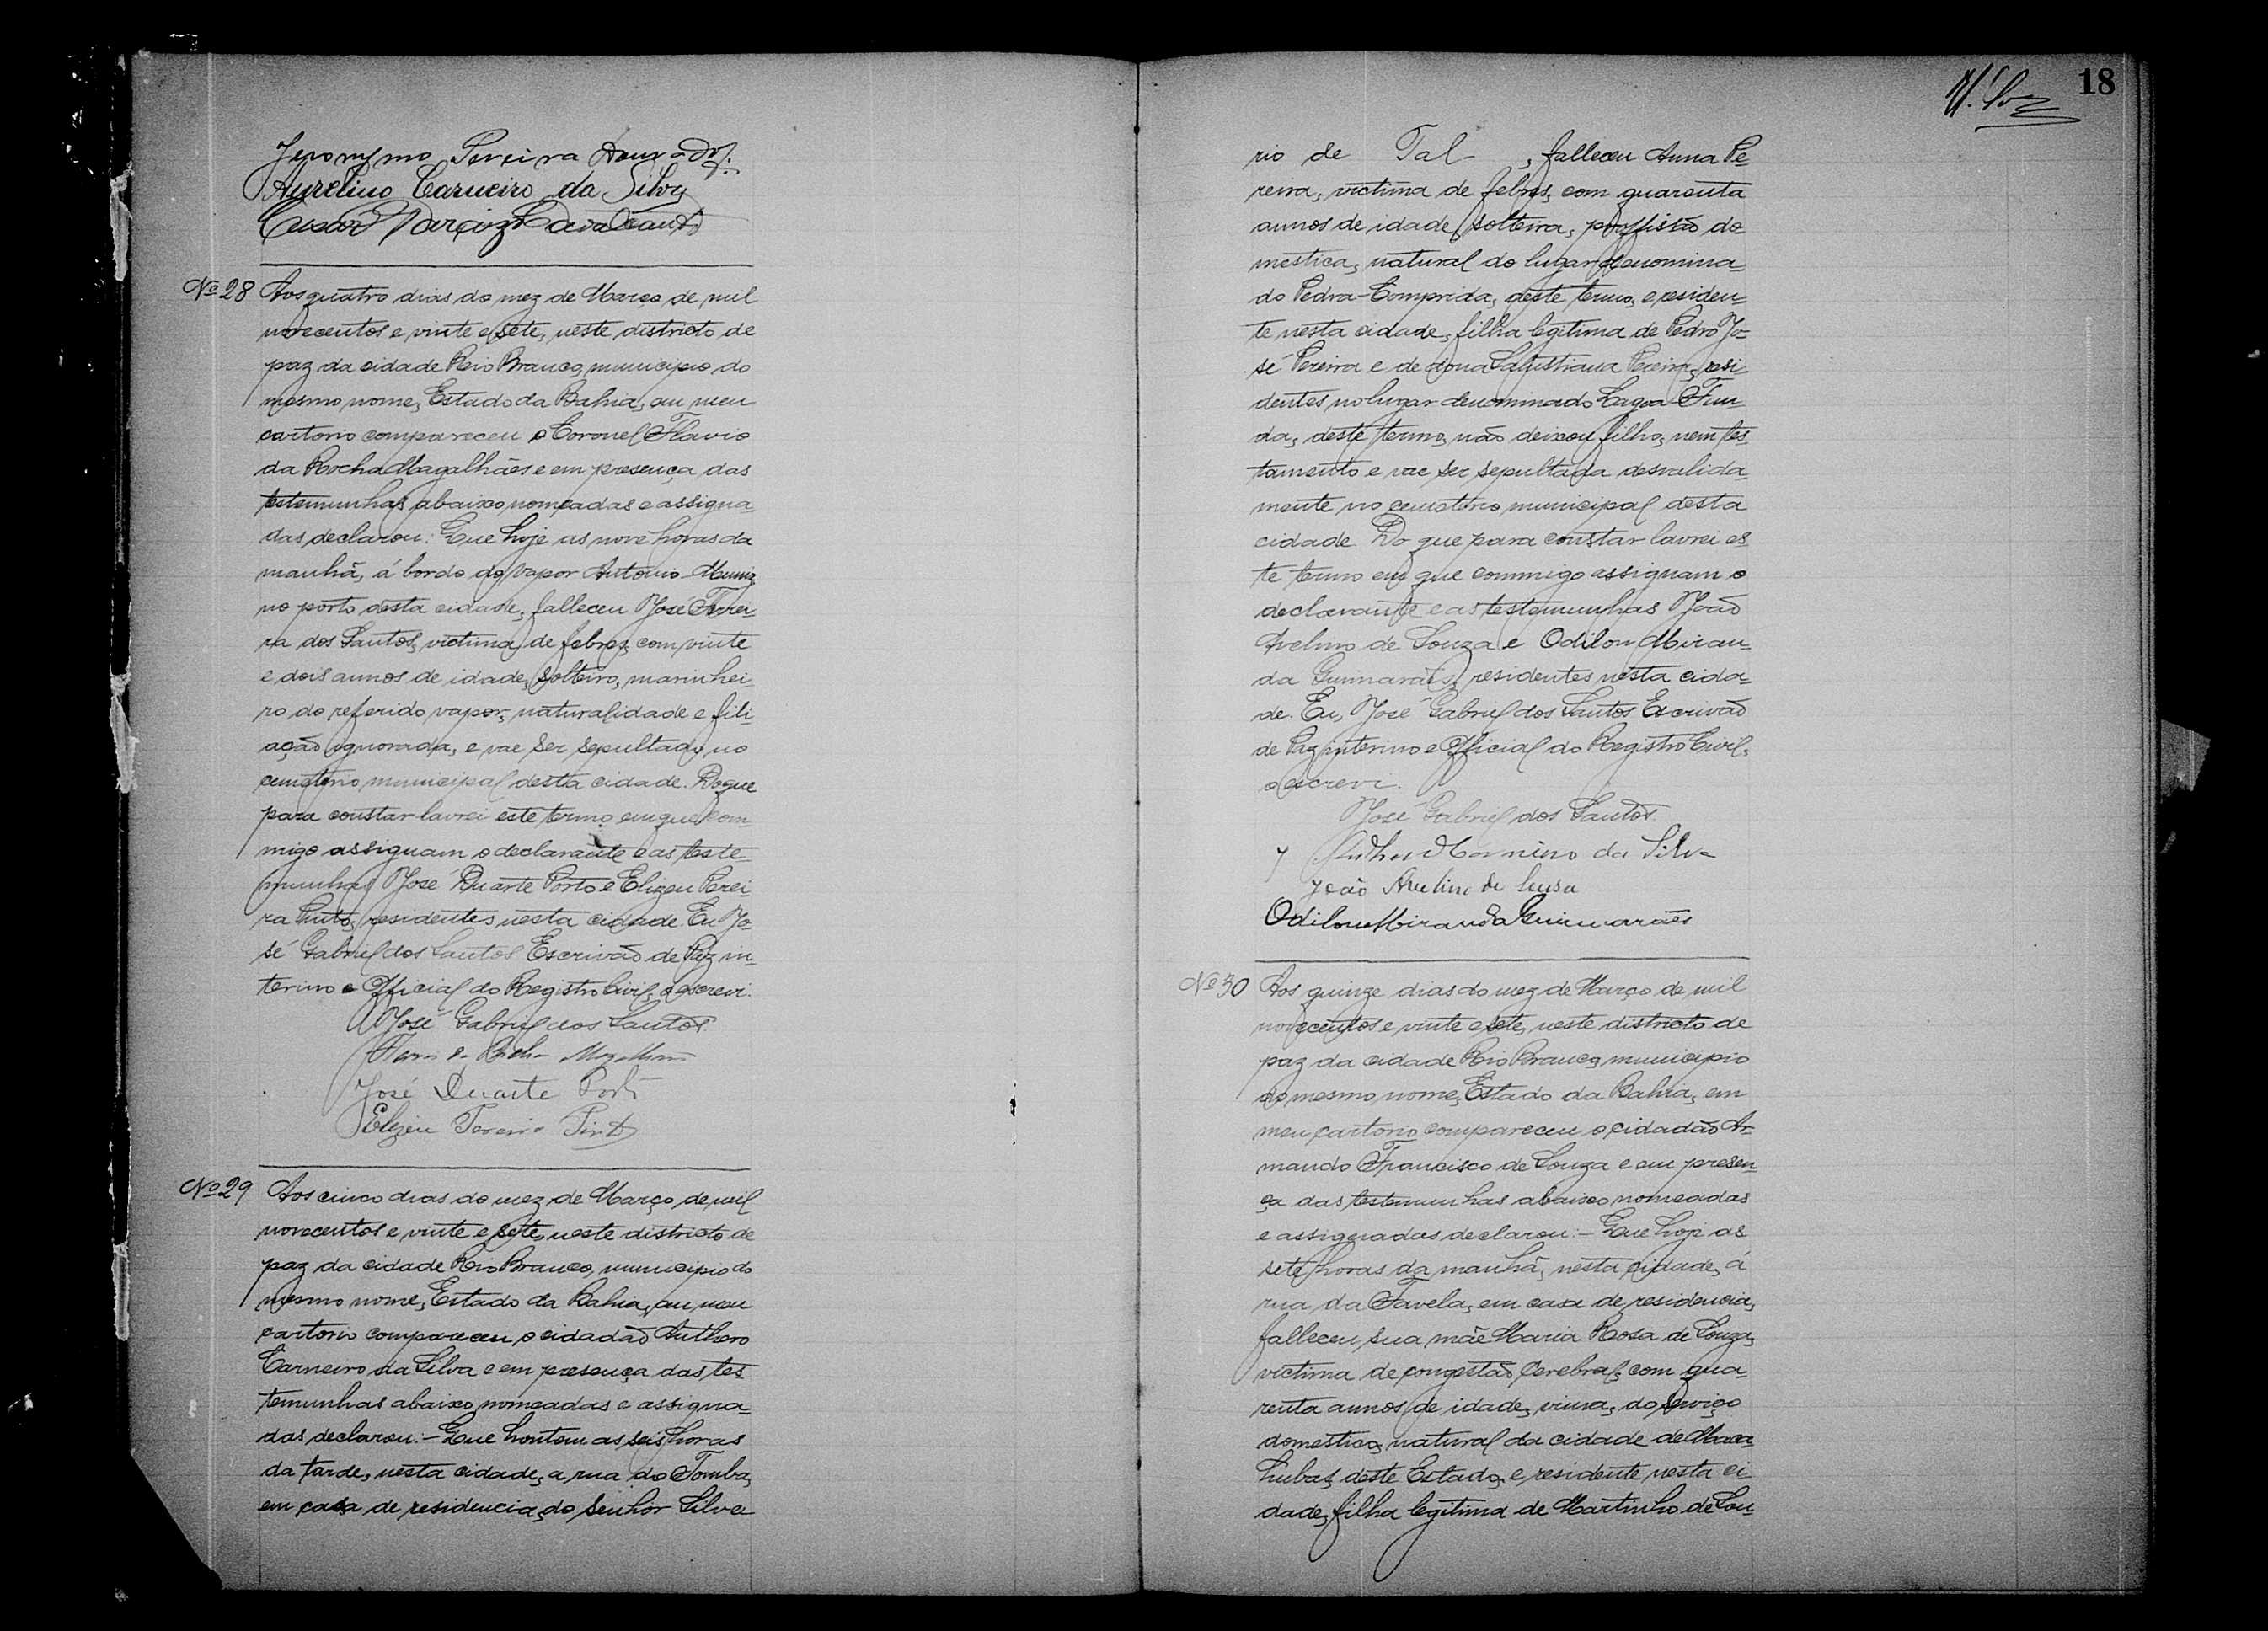 Jeronymo Pereira
Aurelino Carneiro da Silva
Cezar Cavalcanti
Nº 28 Aos quatro dias do mez de Março de mil
novecentos e vinte e sete, neste districto de
paz da cidade Rio Branco, municipio do
mesmo nome, Estado da Bahia, em meu
cartorio compareceu o Coronel Flavio
da Rocha Magalhães e em presença das
testemunhas abaixo nomeadas e assigna-
das declarou: Que hoje as nove horas da
manhã, á bordo do vapor Antonio-Muniz
no porto desta cidade, falleceu José Ferrei-
ra dos Santos, victima de febres, com vinte
e dois annos de idade, solteiro, marinhei-
ro do referido vapor, naturalidade e fili-
ação ignorada, e vae ser sepultado no
cemiterio municipal desta cidade. Do que
para constar lavrei este termo em que com-
migo assignam o declarante e as teste-
munhas José Duarte Porto e Elizeu Perei-
ra Pinto, residentes nesta cidade. Eu Jo-
sé Gabriel dos Santos Escrivão de Paz in-
terino e Official do Registro Civil, o escrevi.
José Gabriel dos Santos
Flavio da Rocha Magalhães
José Duarte Porto
Elizeu Pereira Pinto
Nº 29 Aos cinco dias do mez de Março de mil
novecentos e vinte e sete, neste districto de
paz da cidade Rio Branco, municipio do
mesmo nome, Estado da Bahia, em meu
cartorio compareceu o cidadão Anthero
Carneiro da Silva e em presença das tes
temunhas abaixo nomeadas e assigna-
das declarou:- Que hontem as seis horas
da tarde, nesta cidade, a rua do Tomba,
em casa de residencia, do Senhor Silve
18
rio de Tal -, falleceu Anna Pe-
reira, victima de febres, com quarenta
annos de idade, solteira, proffissão do-
mestica, natural do lugar denomina-
do Pedra-Comprida, deste termo, e residen-
te nesta cidade, filha legitima de Pedro Jo-
sé Pereira e de dona Salustiana Pereira, resi-
dentes no lugar denominado Lagoa-Fun-
da, deste termo, não deixou filho, nem tes-
tamento e vae ser sepultada desvalida-
mente no cemiterio municipal desta
cidade. Do que para constar lavrei es-
te termo em que commigo assignam o
declarante e as testemunhas João
Avelino de Souza e Odilon Miran-
da Guimarães, residentes nesta cida-
de. Eu, José Gabriel dos Santos Escrivão
de Paz interino e Official do Registro Civil,
o escrevi.
José Gabriel dos Santos
Anthero Carneiro da Silva
João Avelino de Sousa
Odilon Miranda Guimarães
Nº 30 Aos quinze dias do mez de Março de mil
novecentos e vinte e sete, neste districto de
paz da cidade Rio Branco, municipio
do mesmo nome, Estado da Bahia, em
meu cartorio compareceu o cidadão Ar-
mando Francisco de Souza e em presen-
ça das testemunhas abaixo nomeadas
e assignadas declarou:- Que hoje as
sete horas da manhã, nesta cidade, á
rua da Favela, em casa de residencia,
falleceu sua mãe Maria Rosa de Souza,
victima de congestão Cerebral, com qua-
renta annos de idade, viuva, do serviço
domestico, natural da cidade de Maca
hubas, deste Estado, e residente nesta ci
dade, filha legitima de Martinho de Sou-